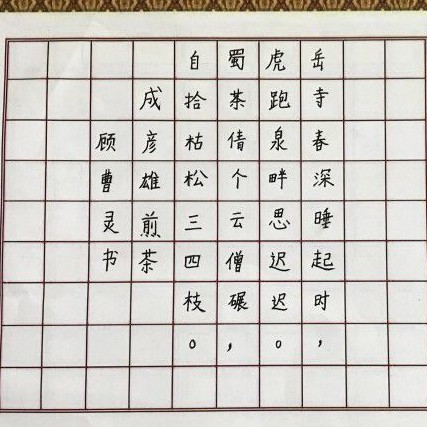 岳寺春深睡起时，
虎跑泉畔思迟迟。
蜀茶倩个云僧碾，
自拾枯松三四枝。
成彦雄煎茶
顾曹灵书